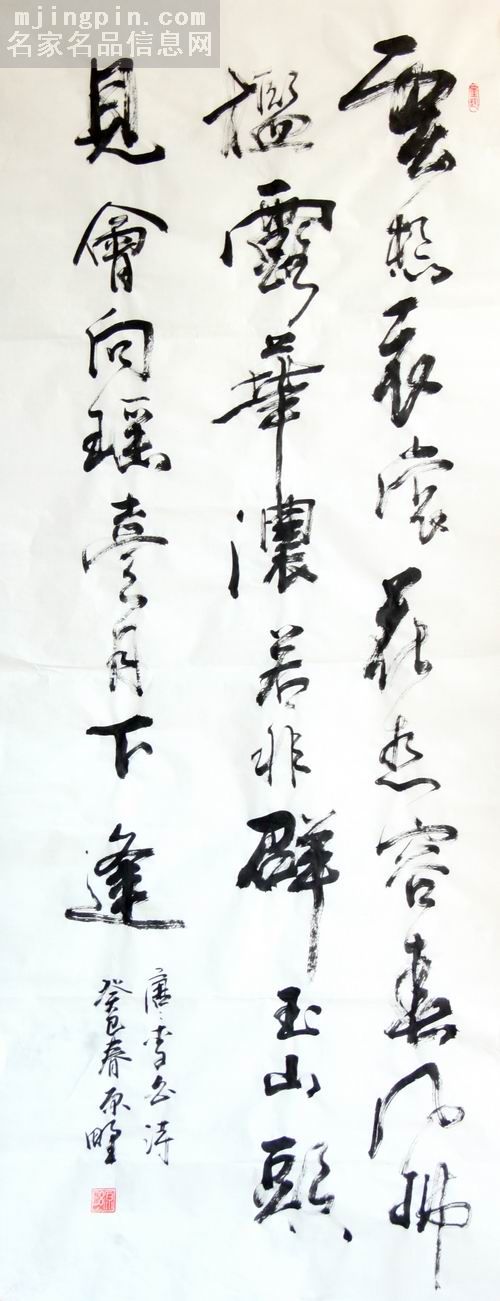 mjingpin.com
名家名品信息网
雲想衣裳花想容春風拂
檻露華濃若非群玉山頭
見會向瑶臺月下逢
唐李白詩
癸巳春原野